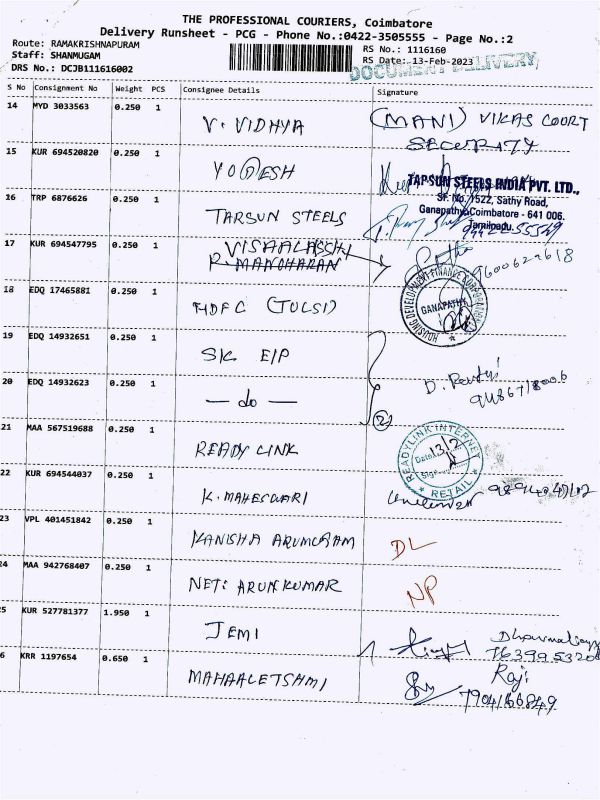 THE PROFESSIONAL COURIERS, Coimbatore
Delivery Runsheet - PCG - Phone No.:0422-3505555 - Page No.:2
Route: RAMAKRISHNAPURAM
RS No.: 1116160
Staff: SHANMUGAM
RS Date: 13-Feb-2023
DRS No.: DCJB111616002
DOCUMENT DELIVERY
S No Consignment No Weight PCS Consignee Details Signature
14 MYD 3033563 0.250 1 V. VIDHYA (MANI) VIKAS COURT
SECURITY
15 KUR 694520820 0.250 1 YOGESH
TARSUN STEELS INDIA PVT. LTD.,
SF. No. 1522, Sathy Road,
Ganapathy, Coimbatore - 641 006.
Tamilnadu.
16 TRP 6876626 0.250 1 TARSUN STEELS
17 KUR 694547795 0.250 1 VISAALATSHI
R. MANOHARAN
18 EDQ 17465881 0.250 1 HDFC (TULSI)
HOUSING DEVELOPMENT FINANCE CORPORATION
GANAPATHY
19 EDQ 14932651 0.250 1 SK E/P
20 EDQ 14932623 0.250 1 — do —
(2)
21 MAA 567519688 0.250 1 READY LINK
READYLINK INTERNET
Date 13/2
Sign
RETAIL
22 KUR 694544037 0.250 1 K. MAHESWARI
23 VPL 401451842 0.250 1 KANISHA ARUMUGAM DL
24 MAA 942768407 0.250 1 NETI ARUNKUMAR NP
25 KUR 527781377 1.950 1 JEMI
26 KRR 1197654 0.650 1 MAHAALETSHMI Raji
7904166849